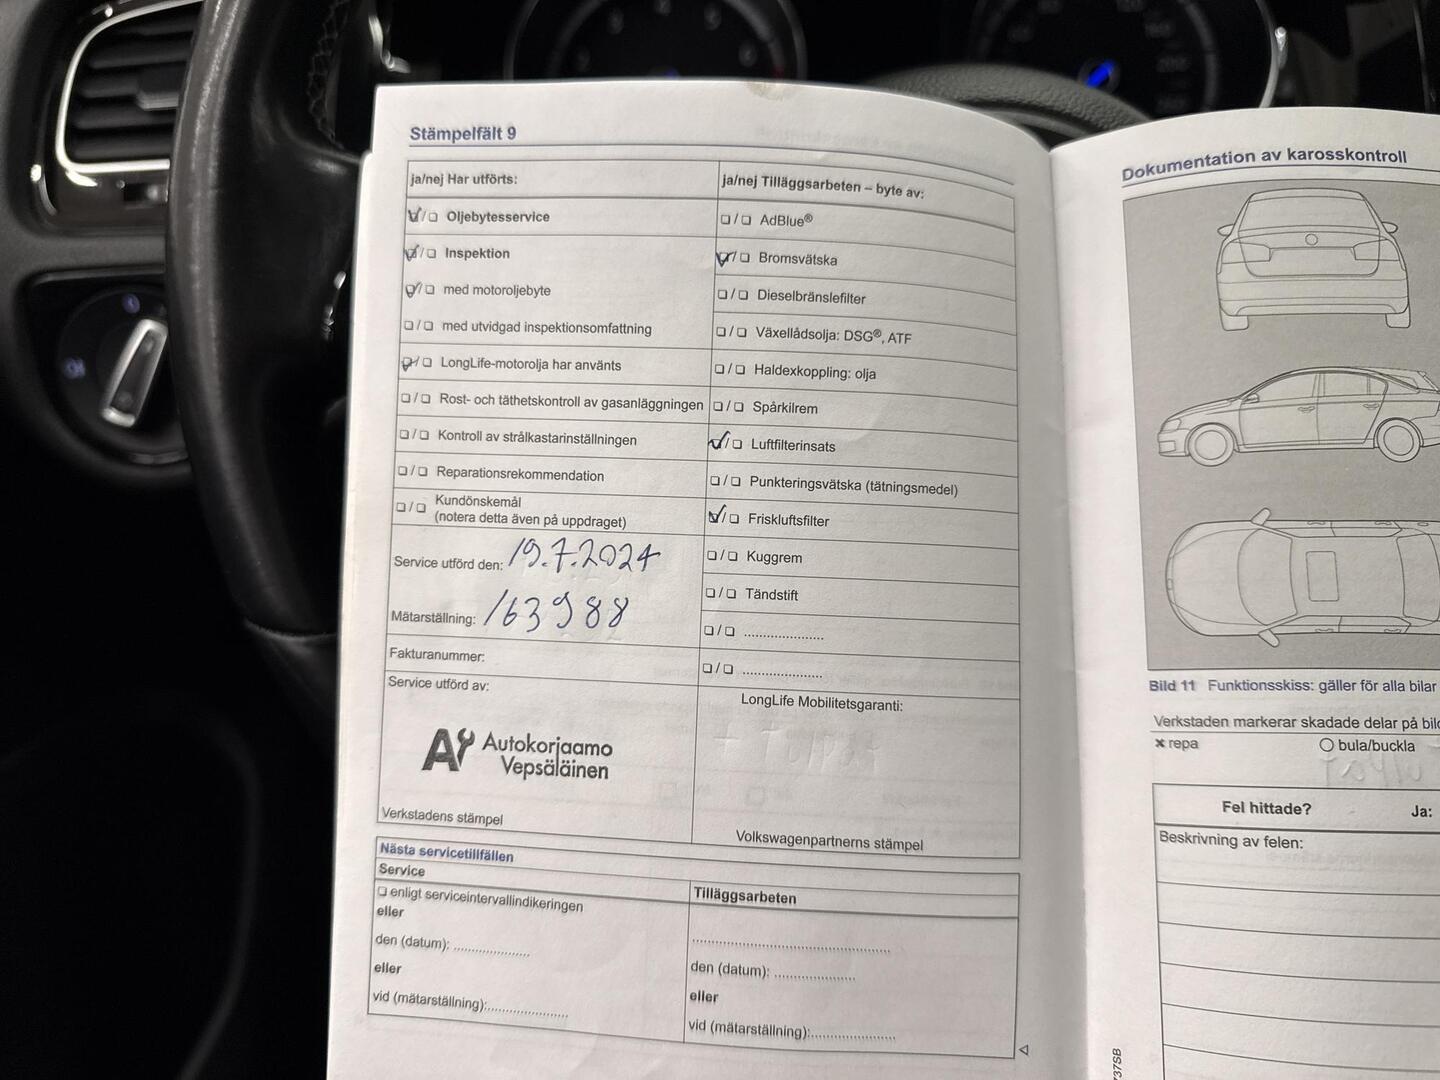 Stämpelfält 9
ja/nej Har utförts:
☑/❑ Oljebytesservice
☑/❑ Inspektion
☑/❑ med motoroljebyte
❑/❑ med utvidgad inspektionsomfattning
☑/❑ LongLife-motorolja har använts
❑/❑ Rost- och täthetskontroll av gasanläggningen
❑/❑ Kontroll av strålkastarinställningen
❑/❑ Reparationsrekommendation
❑/❑ Kundönskemål
(notera detta även på uppdraget)
Service utförd den: 19.7.2024
Mätarställning: 163988
Fakturanummer:
Service utförd av:
Autokorjaamo
Vepsäläinen
Verkstadens stämpel
ja/nej Tilläggsarbeten – byte av:
❑/❑ AdBlue®
☑/❑ Bromsvätska
❑/❑ Dieselbränslefilter
❑/❑ Växellådsolja: DSG®, ATF
❑/❑ Haldexkoppling: olja
❑/❑ Spårkilrem
☑/❑ Luftfilterinsats
❑/❑ Punkteringsvätska (tätningsmedel)
☑/❑ Friskluftsfilter
❑/❑ Kuggrem
❑/❑ Tändstift
❑/❑ .....................
❑/❑ .....................
LongLife Mobilitetsgaranti:
Volkswagenpartnerns stämpel
Nästa servicetillfällen
Service
❑ enligt serviceintervallindikeringen
eller
den (datum): ....................
eller
vid (mätarställning):.....................
Tilläggsarbeten
..................................................
den (datum): .....................
eller
vid (mätarställning):......................
Dokumentation av karosskontroll
Bild 11 Funktionsskiss: gäller för alla bilar
Verkstaden markerar skadade delar på
× repa
○ bula/buckla
Fel hittade?
Ja:
Beskrivning av felen:
737SB